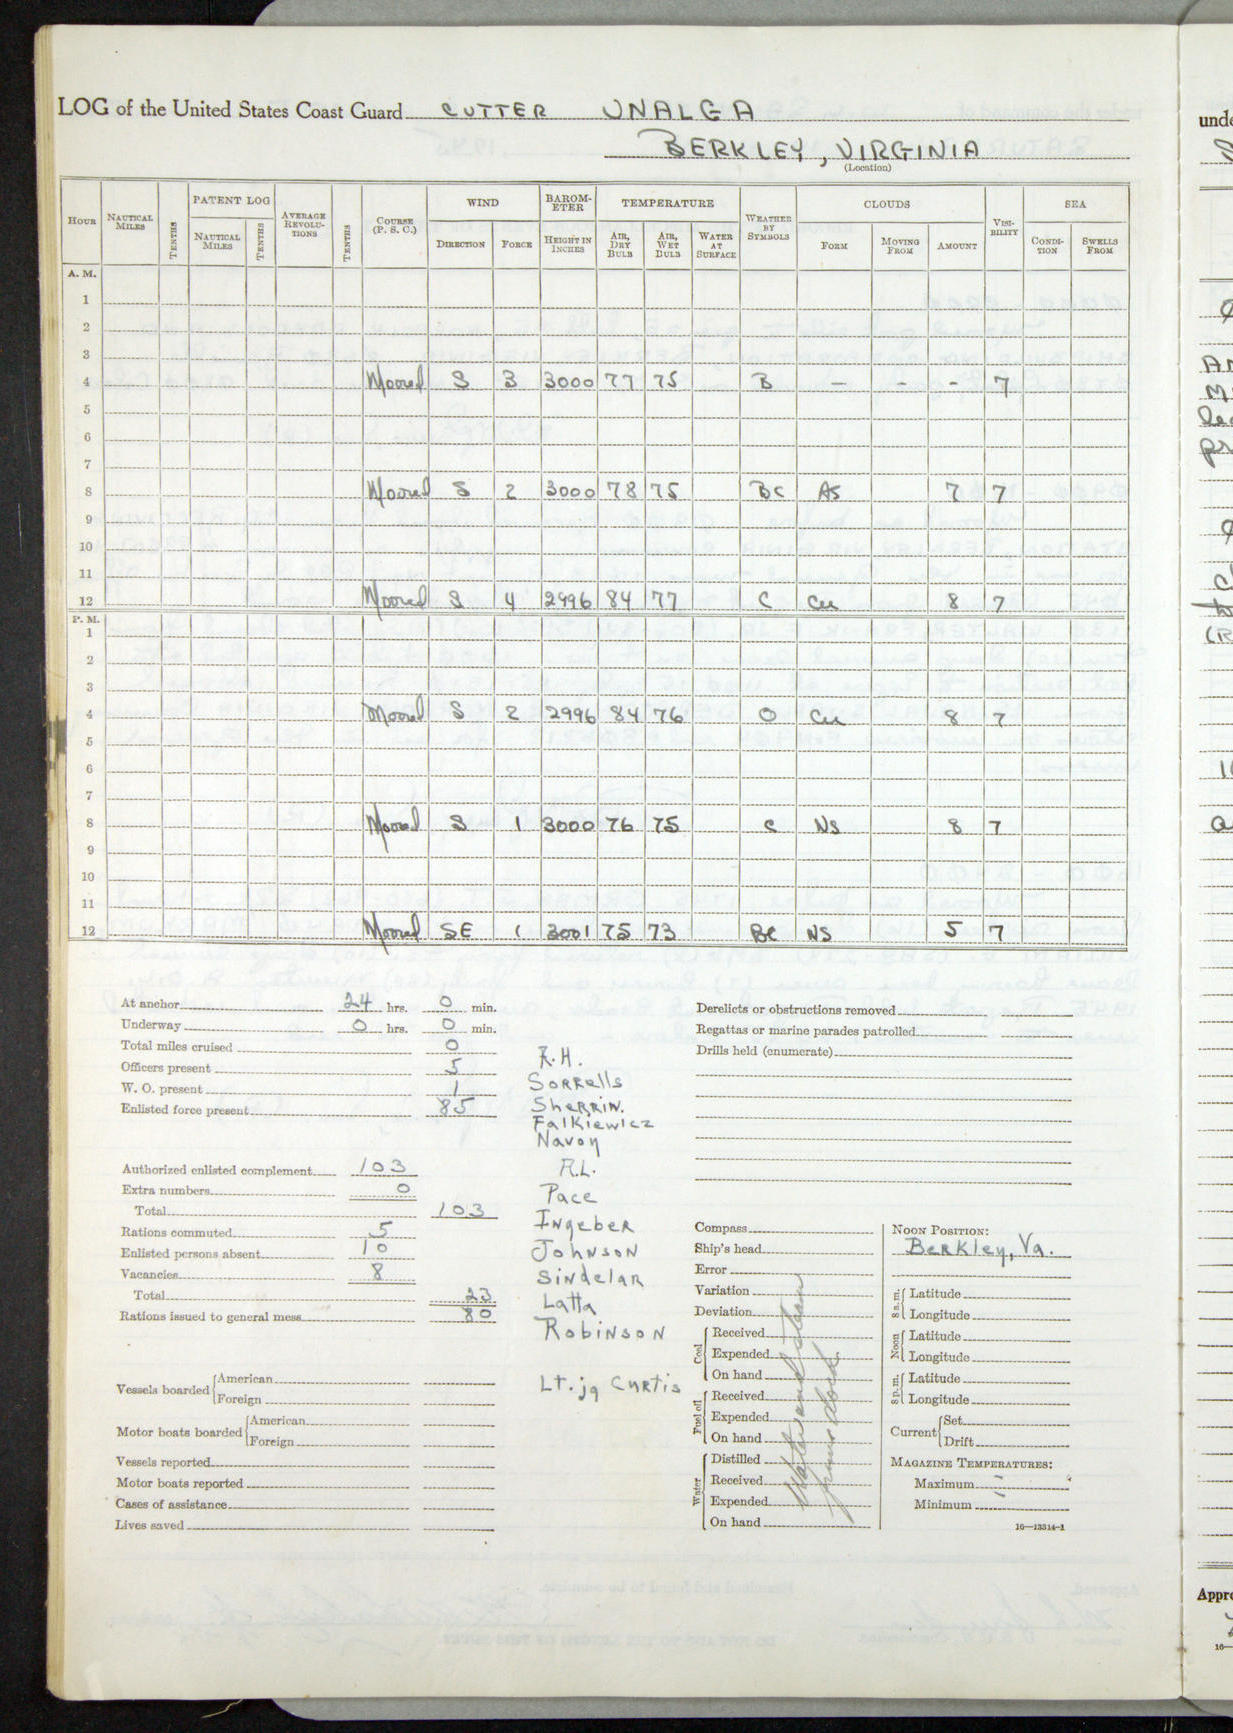 LOG of the United States Coast Guard CUTTER UNALGA
BERKLEY, VIRGINIA
(Location)
HOUR NAUTICAL MILES TENTHS PATENT LOG NAUTICAL MILES TENTHS AVERAGE REVOLU-TIONS TENTHS COURSE (P. S. C.) WIND DIRECTION FORCE BAROM-ETER HEIGHT IN INCHES TEMPERATURE AIR, DRY BULB AIR, WET BULB WATER AT SURFACE WEATHER BY SYMBOLS CLOUDS FORM MOVING FROM AMOUNT VISI-BILITY SEA CONDI-TION SWELLS FROM
A. M.
1
2
3
4 Moored S 3 3000 77 75 B — - - 7
5
6
7
8 Moored S 2 3000 78 75 BC AS 7 7
9
10
11
12 Moored S 4 2996 84 77 C Cu 8 7
P. M.
1
2
3
4 Moored S 2 2996 84 76 O Cu 8 7
5
6
7
8 Moored S 1 3000 76 75 C NS 8 7
9
10
11
12 Moored SE 1 3001 75 73 BC NS 5 7
At anchor 24 hrs. 0 min.
Underway 0 hrs. 0 min.
Total miles cruised 0
Officers present 5
W. O. present 1
Enlisted force present 85
Authorized enlisted complement 103
Extra numbers 0
Total 103
Rations commuted 5
Enlisted persons absent 10
Vacancies 8
Total 23
Rations issued to general mess 80
Vessels boarded American
Foreign
Motor boats boarded American
Foreign
Vessels reported
Motor boats reported
Cases of assistance
Lives saved
R.H.
Sorrells
Sherrin.
Falkiewicz
Navoy
R.L.
Pace
Ingeber
Johnson
Sindelar
Latta
Robinson
Lt. jg Curtis
Derelicts or obstructions removed
Regattas or marine parades patrolled
Drills held (enumerate)
Compass
Ship's head
Error
Variation
Deviation
Coal Received
Expended
On hand
Fuel oil Received
Expended
On hand
Water Distilled
Received
Expended
On hand
Water and steam
from dock
NOON POSITION:
Berkley, Va.
8 a.m. Latitude
Longitude
Noon Latitude
Longitude
8 p.m. Latitude
Longitude
Current Set
Drift
MAGAZINE TEMPERATURES:
Maximum
Minimum
16—13314-1
unde
Appro
16—